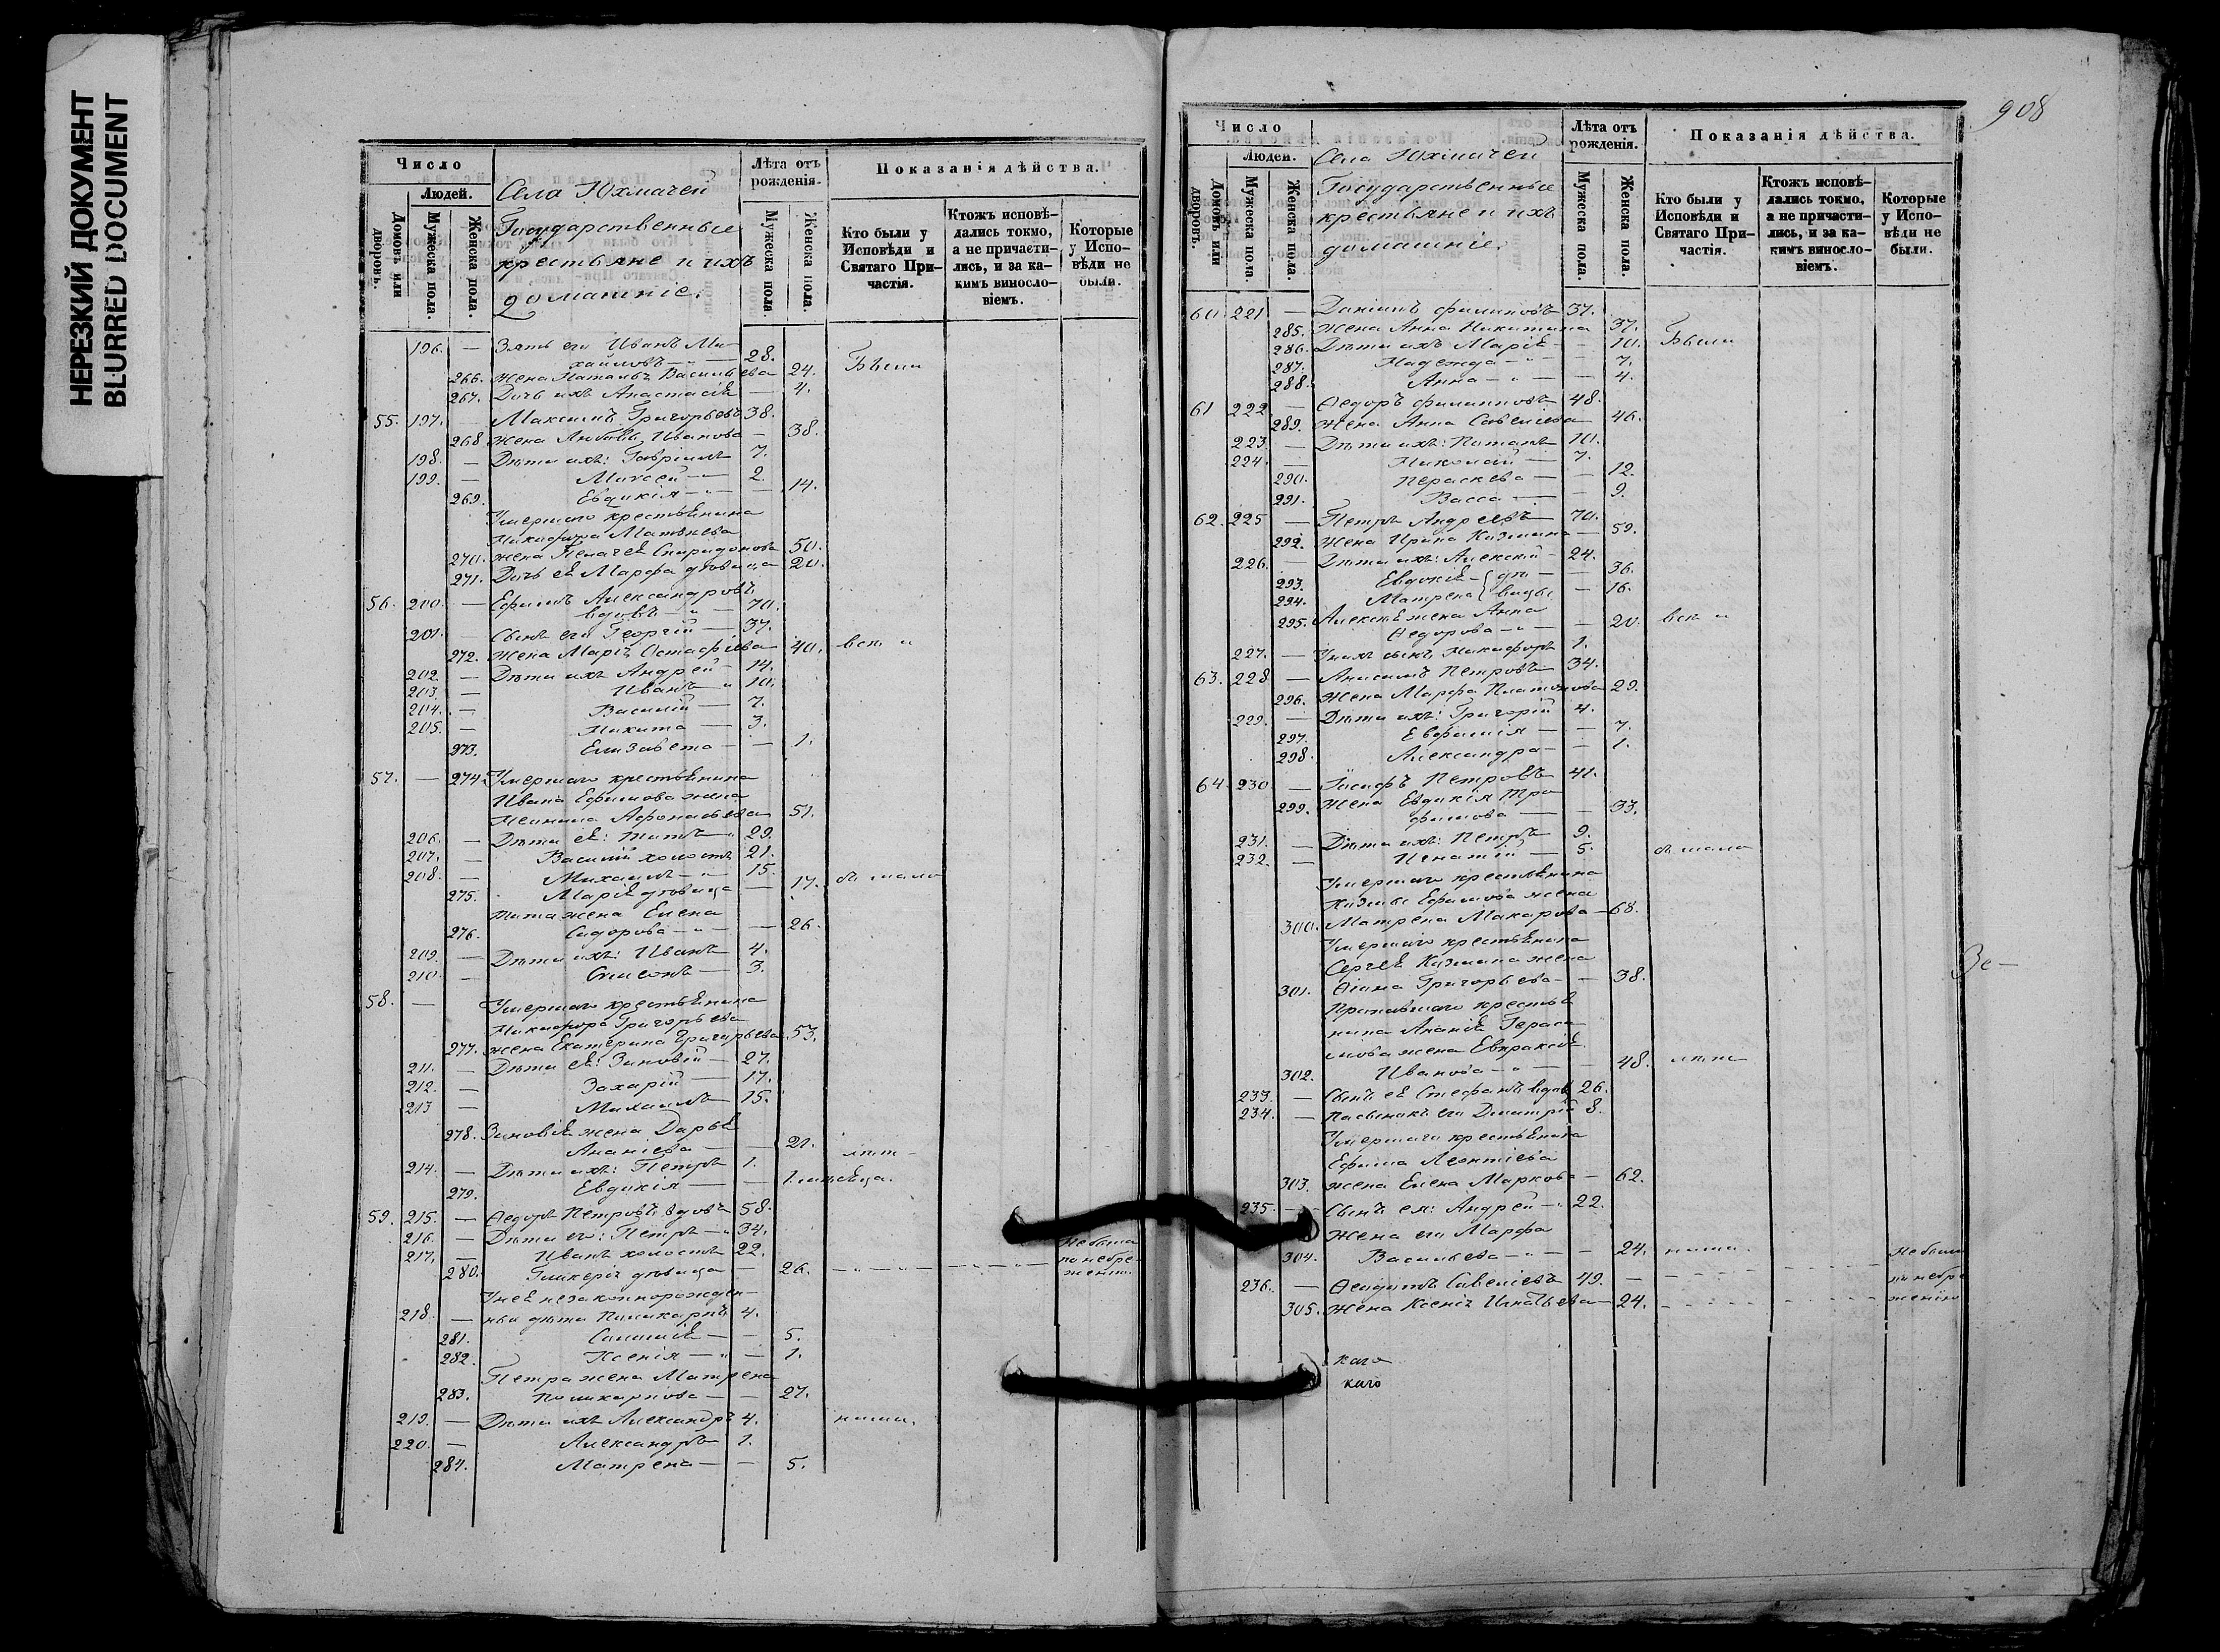 НЕРЕЗКИЙ ДОКУМЕНТ
BLURRED DOCUMENT
Число
Людей.
Домовъ или дворовъ.
Мужеска пола.
Женска пола.
Села Юхмачей
Государственные
крестьяне и ихъ
домашніе.
Лѣта отъ рожденія.
Мужеска пола.
Женска пола.
Показанія дѣйства.
Кто были у Исповѣди и Святаго Причастія.
Ктожъ исповѣдались токмо, а не причастились, и за какимъ винословіемъ.
Которые у Исповѣди не были.
196. — Зять его Иванъ Ми-
хайловъ — 28.
266. Жена Наталья Васильева 24. Были
267. Дочь ихъ Анастасія — 4.
55. 197. — Максимъ Григорьевъ 38.
268. Жена Любовь Иванова — 38.
198. — Дѣти ихъ: Гавріилъ 7.
199. — Моисей — 2.
269. Евдокія — 14.
Умершаго крестьянина
Никифора Матвѣева
270. жена Пелагея Спиридонова 50.
271. Дочь ея Марфа дѣвица 20.
56. 200. — Ефимъ Александровъ
вдовъ — 70.
201. — Сынъ его Георгій — 37.
272. Жена Марія Остафіева 40. всѣ и
202. — Дѣти ихъ Андрей — 14.
203. — Иванъ " 10.
204. — Василій — 7.
205. — Никита — 3.
273. Елизавета — — 1.
57. — 274. Умершаго крестьянина
Ивана Ефимова жена
Афонасьева 51.
206. — Дѣти ея: Титъ " 29.
207. — Василій холостъ 21.
208. — Михаилъ — " 15.
275. Марія дѣвица — 17.
Тита жена Елена
276. Сидорова — " — 26.
209. — Дѣти ихъ: Иванъ 4.
210. — Симеонъ — 3.
58. — Умершаго крестьянина
Никифора Григорьева
277. жена Екатерина Григорьева 53.
211. — Дѣти ея: Зиновій — 27.
212. — Захарій — 17.
213 — Михаилъ — 15.
278. Зиновія жена Дарья
Ананіева — — 21.
214. — Дѣти ихъ: Петръ 1.
279. Евдокія — — 1. мѣсяца.
59. 215. — Ѳедоръ Петровъ вдовъ 58.
216. — Дѣти его: Петръ — " 34.
217. — Иванъ холостъ 22.
280. Гликерія дѣвица — 26. — Не была по небрежению.
У нея незаконнорожден-
218. — ныя дѣти Поликарпъ 4.
281. Соломія — — 5.
282. Ксенія — " — 1.
Петра жена Матрена
283. Поликарпова — — 27.
219. — Дѣти ихъ Александръ 4.
220. — Александръ 1.
284. Матрена — — 5.
908
Число
Людей.
Домовъ или дворовъ.
Мужеска пола.
Женска пола.
Села Юхмачей
Государственные
крестьяне и ихъ
домашніе.
Лѣта отъ рожденія.
Мужеска пола.
Женска пола.
Показанія дѣйства.
Кто были у Исповѣди и Святаго Причастія.
Ктожъ исповѣдались токмо, а не причастились, и за какимъ винословіемъ.
Которые у Исповѣди не были.
60. 221 — Даніилъ Филиповъ 37.
285. Жена Анна Никитина 37.
286. Дѣти ихъ Марія — — 10. Были
287. Надежда — " — — 7.
288. Анна — " — — 4.
61 222 — Ѳедоръ Филипповъ 48.
289. Жена Анна Савельева 46.
223. — Дѣти ихъ: Потапъ 10.
224. — Николай — 7.
290. Пераскева — — 12.
291. Васса — — 9.
62. 225 — Петръ Андреевъ — 70.
292. Жена Ирина Кузмина — 59.
226. — Дѣти ихъ: Алексѣй — 24.
293. Евдокія — } дѣ — — 36.
294. Матрена } вицы — 16.
295. Алексѣя жена Анна
Ѳедорова — " — — 20. всѣ и
227. — У нихъ сынъ Никифоръ 1.
63. 228 — Анисимъ Петровъ 34.
296. Жена Марфа Платонова 29.
229. — Дѣти ихъ: Григорій 4.
297. Евфимія — — 7.
298. Александра — — 1.
64 230 — Іосифъ Петровъ 41.
299. Жена Евдокія Тро-
фимова — — 33.
231. — Дѣти ихъ: Петръ 9.
232. — Игнатій — 5.
Умершаго крестьянина
Кузьмы Ефимова жена
300. Матрена Макарова — 68.
Умершаго крестьянина
Сергѣя Кузмина жена
301. Григорьева — — 38.
крестья
нина Ананія Гераси
мова жена Евпраксія
302. Иванова — " — — 48.
233. — Сынъ ея Стефанъ вдовъ 26.
234. — Пасынокъ его Дмитрій 8.
Умершаго крестьянина
Ефима Леонтіева
303. жена Елена Маркова — 62.
235 — Сынъ ея: Андрей — " 22.
Жена его Марфа
304. Васильева — " — — 24.
236. — Савеліевъ 49. — Не были по небрежению
305. Жена Ксенія Игнатьева — 24.
каго
каго